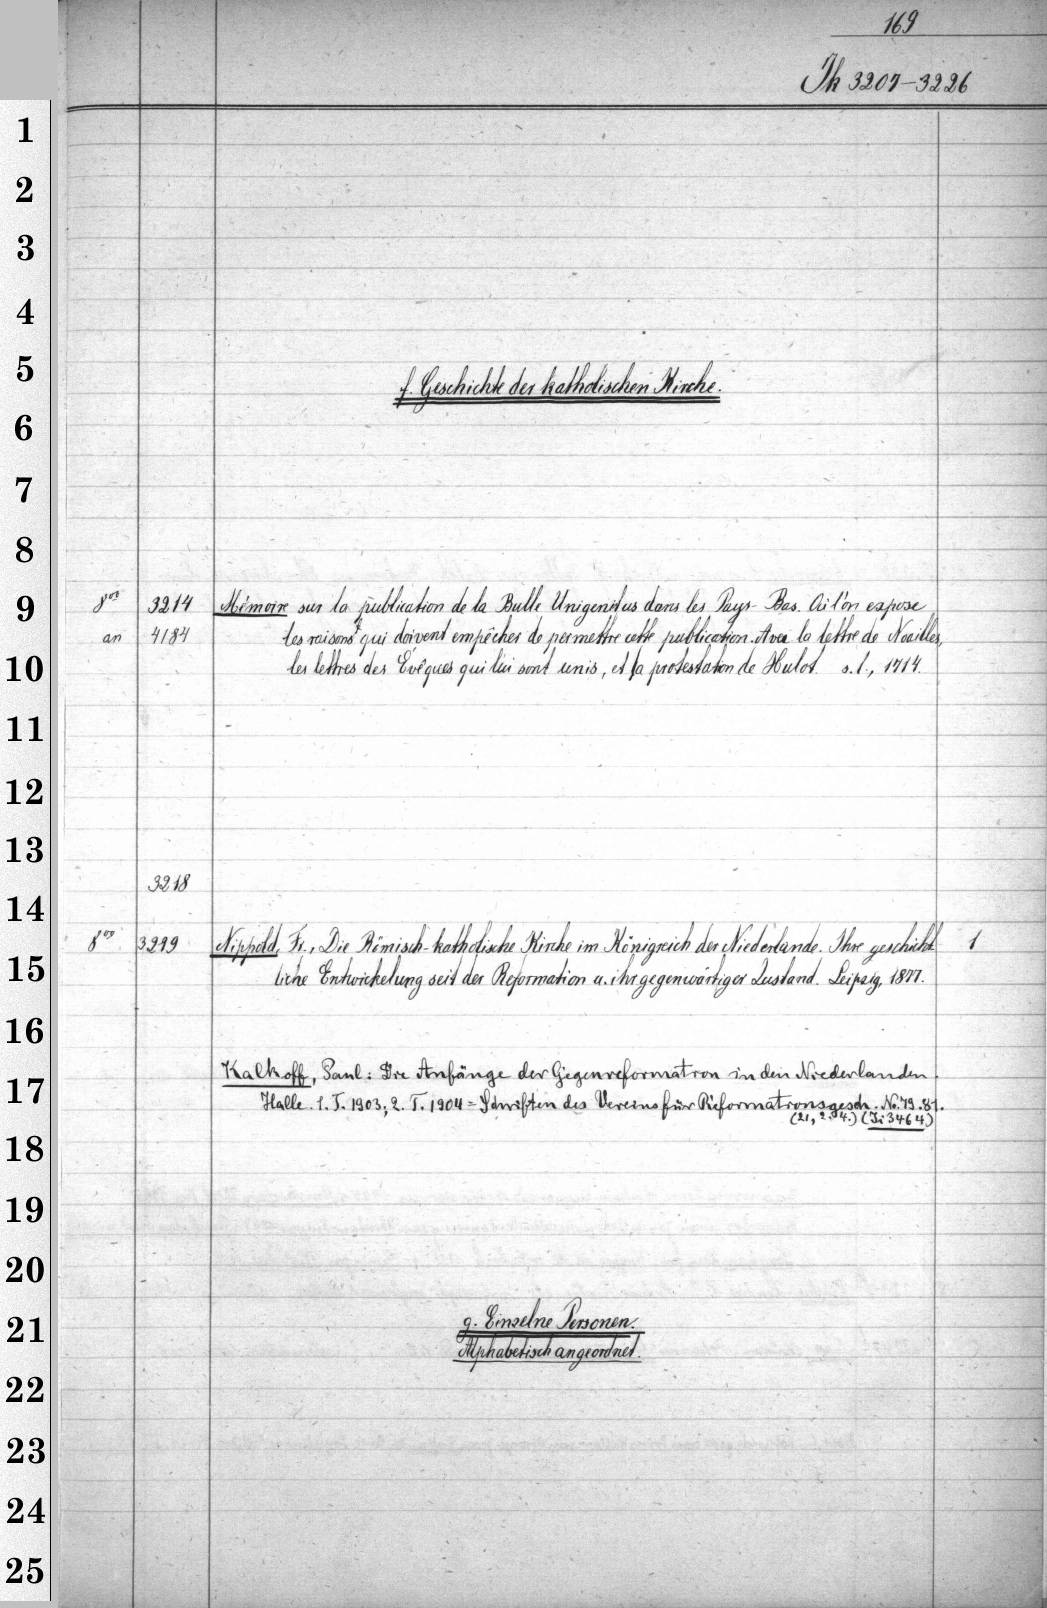 169
Th 3207-3226
1
2
3
4
5
f. Geschichte der katholischen Kirche.
6
7
8
9
8vo 3214 Mémoire sur la publication de la Bulle Unigenitus dans les Pays-Bas. Où l'on expose
an 4184 les raisons qui doivent empêcher de permettre cette publication. Avec la lettre de Noailles,
10 les lettres des Evêques qui lui sont unis, et la protestation de Hulot. s. l., 1714.
11
12
13
3218
14
8vo 3219 Nippold, Fr., Die Römisch-katholische Kirche im Königreich der Niederlande. Ihre geschicht 1
15 liche Entwickelung seit der Reformation u. ihr gegenwärtiger Zustand. Leipzig, 1877.
16
Kalkoff, Paul: Die Anfänge der Gegenreformation in den Niederlanden.
17
Halle. 1. T. 1903; 2. T. 1904 = Schriften des Vereins für Reformationsgesch. No. 79. 81.
(21, 2. 4.) (Ti 3464)
18
19
20
g. Einzelne Personen.
21
Alphabetisch angeordnet.
22
23
24
25